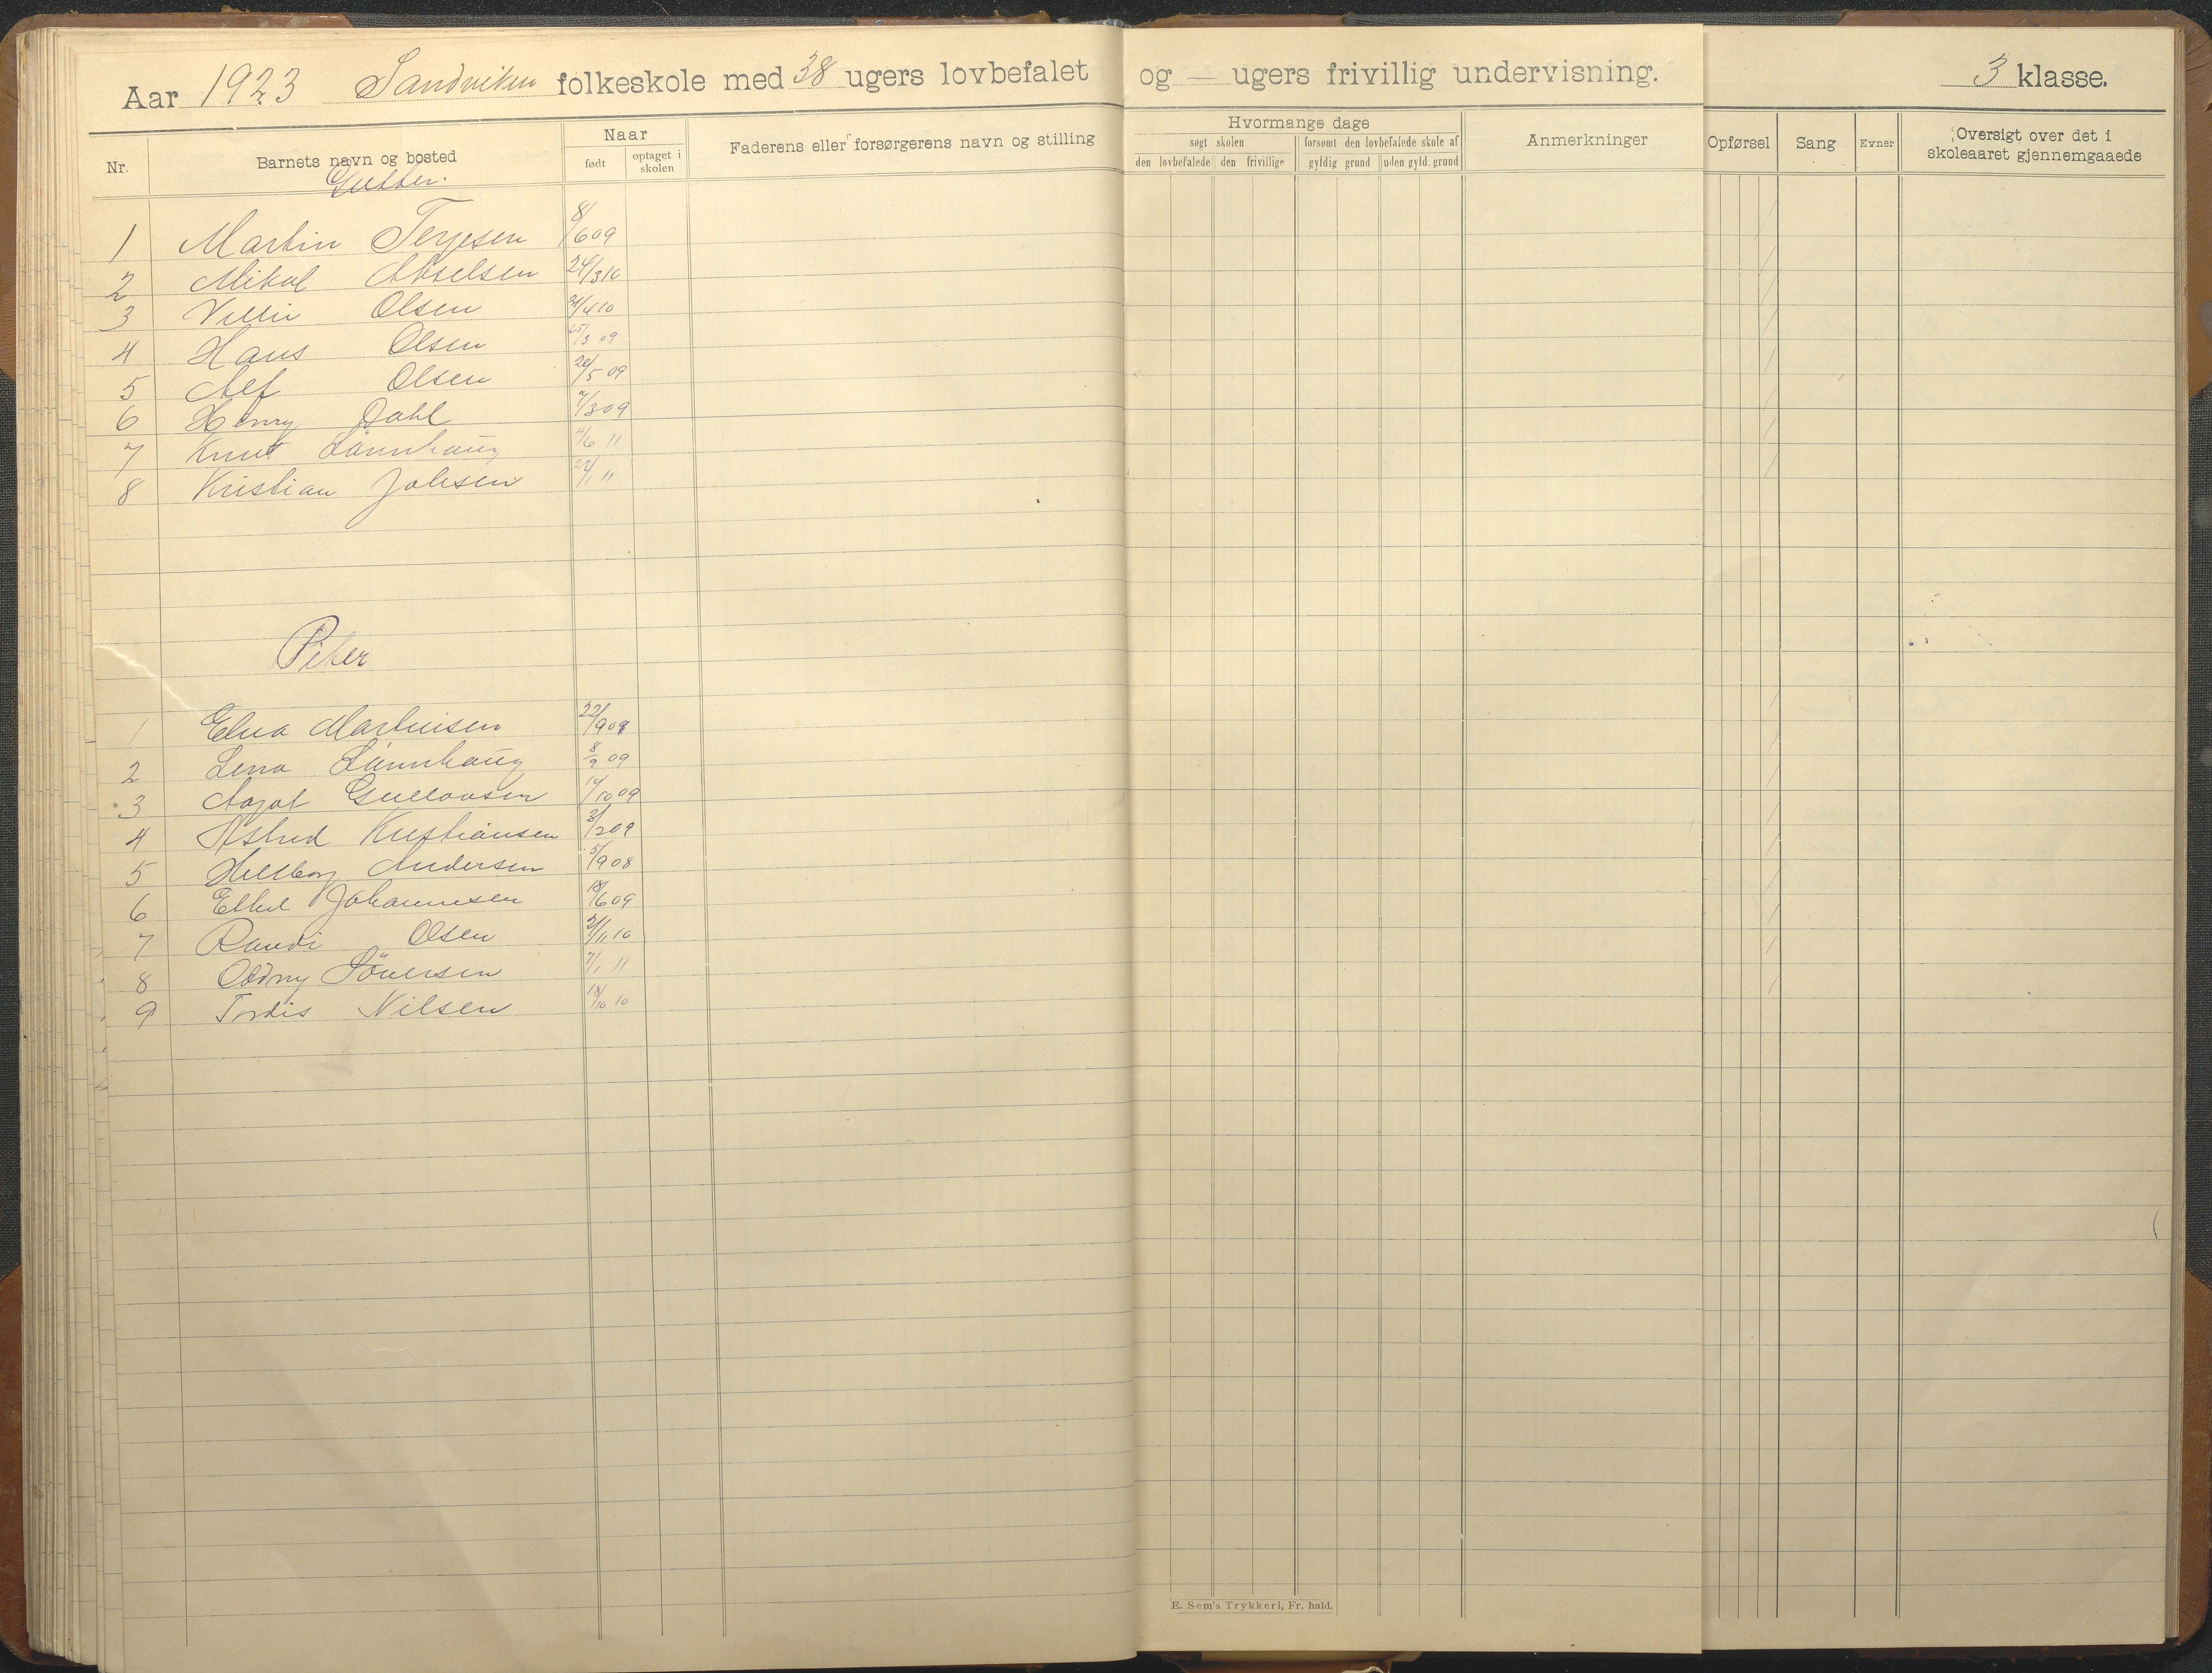 Aar 1923 Sandviken folkeskole med 38 ugers lovbefalet og — ugers frivillig undervisning. 3 klasse.
Nr. Barnets navn og bosted Naar født optaget i skolen Faderens eller forsørgerens navn og stilling Hvormange dage søgt skolen den lovbefalede den frivillige forsømt den lovbefalede skole af gyldig grund uden gyld. grund Anmerkninger Opførsel Sang Evner Oversigt over det i skoleaaret gjennemgaaede
Gutter.
1 Martin Terjesen 8/6 09
2 Mikal Akselsen 24/3 10
3 Villi Olsen 21/4 10
4 Hans Olsen 25/3 09
5 Alf Olsen 20/5 09
6 Henry Dahl 7/3 09
7 Knut Lünnhaug 4/6 11
8 Kristian Jahsen 22/1 11
Piker
1 Elna Martinisen 22/9 09
2 Lena Lünnhaug 8/9 09
3 Aagot Gullovsen 14/10 09
4 Astrid Kristiansen 3/2 09
5 Hillborg Andersen 5/9 08
6 Ethel Johannesen 18/6 09
7 Randi Olsen 2/11 10
8 Oddny Söversen 7/1 11
9 Tordis Nilsen 18/10 10
E. Sem's Trykkeri, Fr. hald.